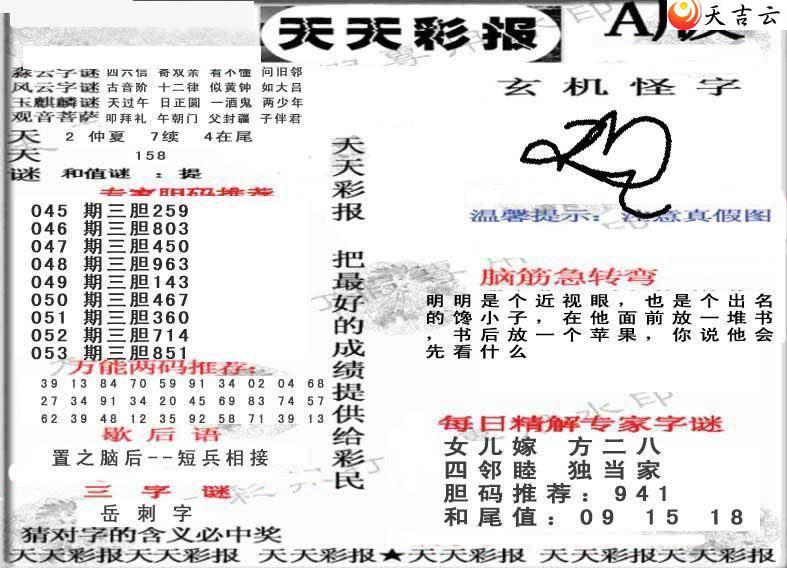 天吉云
天天彩报
森云字谜 四六信 奇双亲 看不懂 问旧邻
风云字谜 古音阶 十二律 似黄钟 如大吕
玉麒麟谜 天过午 日正圆 一酒鬼 两少年
观音菩萨 叩拜礼 午朝门 父封疆 子伴君
天 2 仲夏 7续 4在尾
天 158
谜 和值谜 : 提
专家胆码推荐
045 期三胆259
046 期三胆803
047 期三胆450
048 期三胆963
049 期三胆143
050 期三胆467
051 期三胆360
052 期三胆714
053 期三胆851
万能两码推荐:
39 13 84 70 59 91 34 02 04 68
27 34 91 34 20 45 69 83 74 57
62 39 48 12 35 92 58 71 39 13
歇后语
置之脑后--短兵相接
三字谜
岳刺字
猜对字的含义必中奖
天天彩报 把最好的成绩提供给彩民
玄机怪字
温馨提示: 注意真假图
脑筋急转弯
明明是个近视眼,也是个出名
的馋小子,在他面前放一堆书
,书后放一个苹果,你说他会
先看什么
每日精解专家字谜
女儿嫁 方二八
四邻睦 独当家
胆码推荐:941
和尾值:09 15 18
天天彩报天天彩报 天天彩报★天天彩报 天天彩报天天彩报